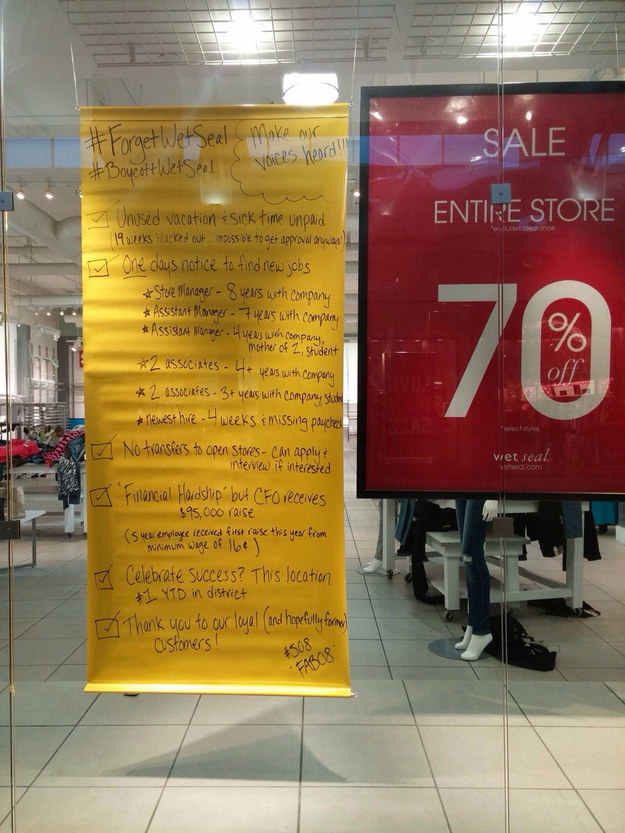 #ForgetWetSeal
#BoycottWetSeal
Make our
voices heard!!!
Unused vacation & sick time unpaid
(19 weeks blacked out impossible to get approval anyways!)
One days notice to find new jobs
☆ Store Manager - 8 years with company
☆ Assistant Manager - 7 years with company
☆ Assistant Manager - 4 years with company,
mother of 2, student
☆ 2 associates - 4+ years with company
☆ 2 associates - 3+ years with company,
☆ newest hire - 4 weeks & missing paycheck
No transfers to open stores - can apply &
interview if interested
"Financial Hardship" but CFO receives
$95,000 raise
(5 year employee received first raise this year from
minimum wage of 16¢)
Celebrate Success? This location
#1 YTD in district
Thank you to our loyal (and hopefully former)
customers!
#508
"FAB08"
SALE
ENTIRE STORE
*excludes clearance
70% off
*select styles
wet seal.
wetseal.com